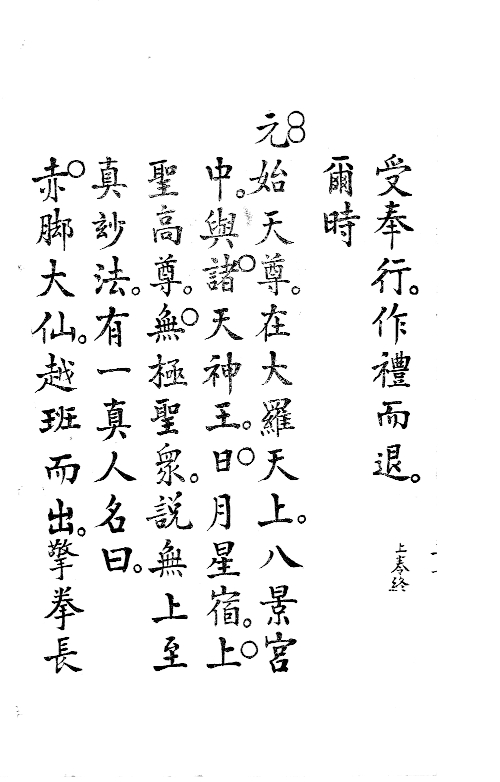 受奉行。作禮而退。
上奉終
爾時
元始天尊。在大羅天上。八景宮
中。與諸天神王。日月星宿。上
聖高尊。無極聖衆。説無上至
真玅法。有一真人名曰。
赤脚大仙。越班而出。擎拳長